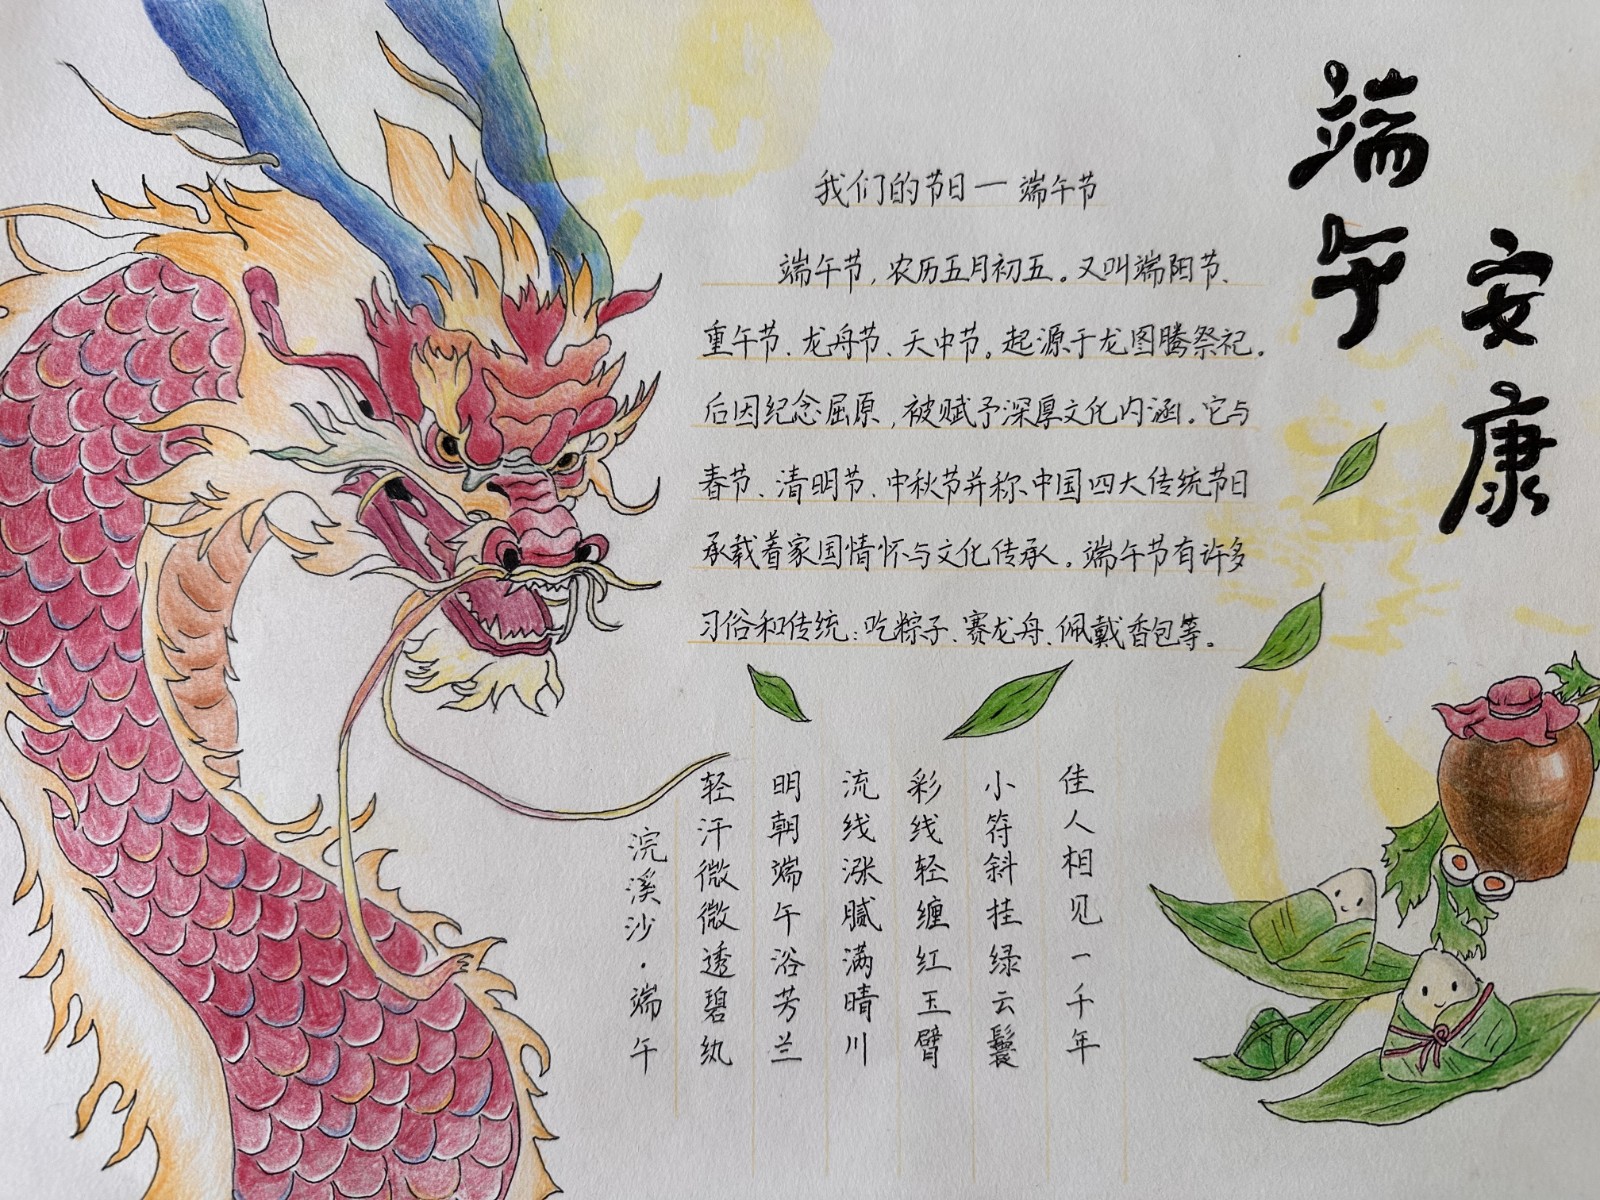 端午
安康
我们的节日—端午节
端午节，农历五月初五。又叫端阳节、
重午节、龙舟节、天中节。起源于龙图腾祭祀。
后因纪念屈原，被赋予深厚文化内涵。它与
春节、清明节、中秋节并称、中国四大传统节日
承载着家国情怀与文化传承。端午节有许多
习俗和传统：吃粽子、赛龙舟、佩戴香包等。
浣溪沙·端午
轻汗微微透碧纨
明朝端午浴芳兰
流线涨腻满晴川
彩线轻缠红玉臂
小符斜挂绿云鬟
佳人相见一千年